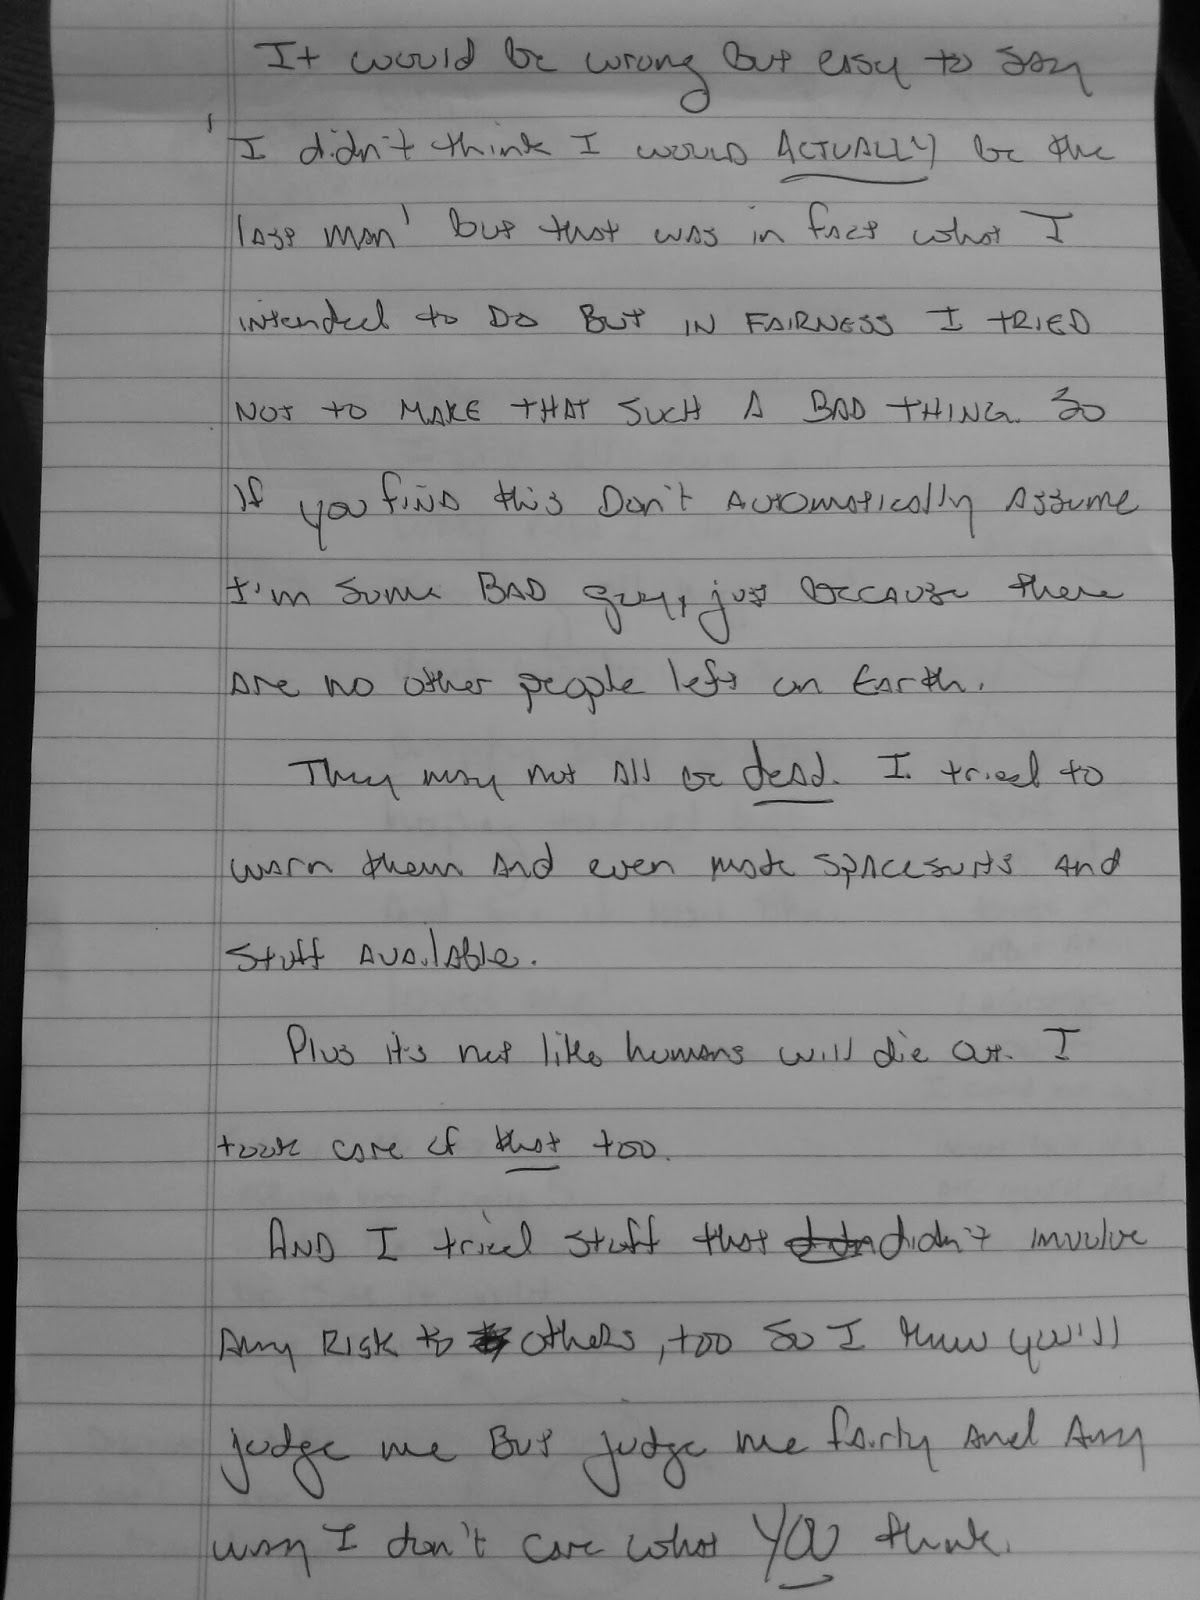 It would be wrong but easy to say
'I didn't think I would ACTUALLY be the
last man' but that was in fact what I
intended to DO BUT IN FAIRNESS I TRIED
NOT TO MAKE THAT SUCH A BAD THING. SO
If you find this Don't Automatically Assume
I'm some BAD guy, just because there
are no other people left on Earth.
They may not all be dead. I tried to
warn them and even made spacesuits and
stuff available.
Plus it's not like humans will die out. I
took care of that too.
AND I tried stuff that didn't involve
Any RISK to others, too so I know you'll
judge me But judge me fairly and Any
way I don't care what YOU think.